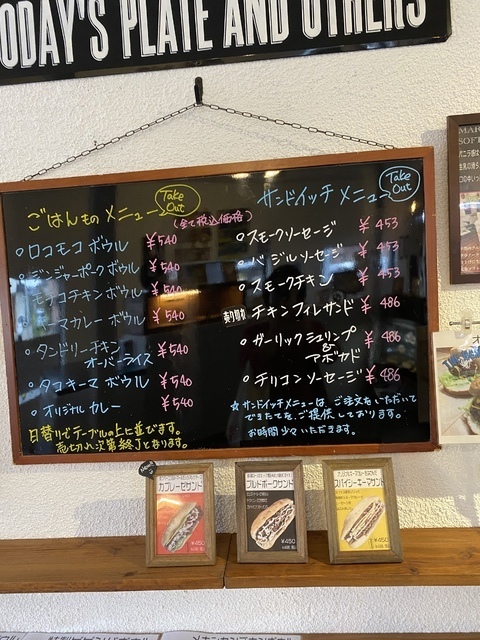 TODAY'S PLATE AND OTHERS
ごはんものメニュー
Take Out
(全て税込価格)
ロコモコ ボウル ¥540
ジンジャーポークボウル ¥540
モチコチキンボウル ¥540
キーマカレー ボウル ¥540
タンドリーチキン
オーバーライス ¥540
タコキーマ ボウル ¥540
オリジナル カレー ¥540
日替りでテーブルの上に並びます。
売切れ次第終了となります。
サンドイッチメニュー
Take Out
スモークソーセージ ¥453
バジルソーセージ ¥453
スモークチキン ¥453
チキンフィレサンド ¥486
ガーリックシュリンプ
&
アボカド ¥486
チリコンソーセージ ¥486
☆ サンドイッチメニューは、ご注文をいただいて
できたてを、ご提供しております。
お時間少々いただきます。
カプレーゼサンド
¥450
プルドポークサンド
¥450
スパイシーキーマサンド
¥450